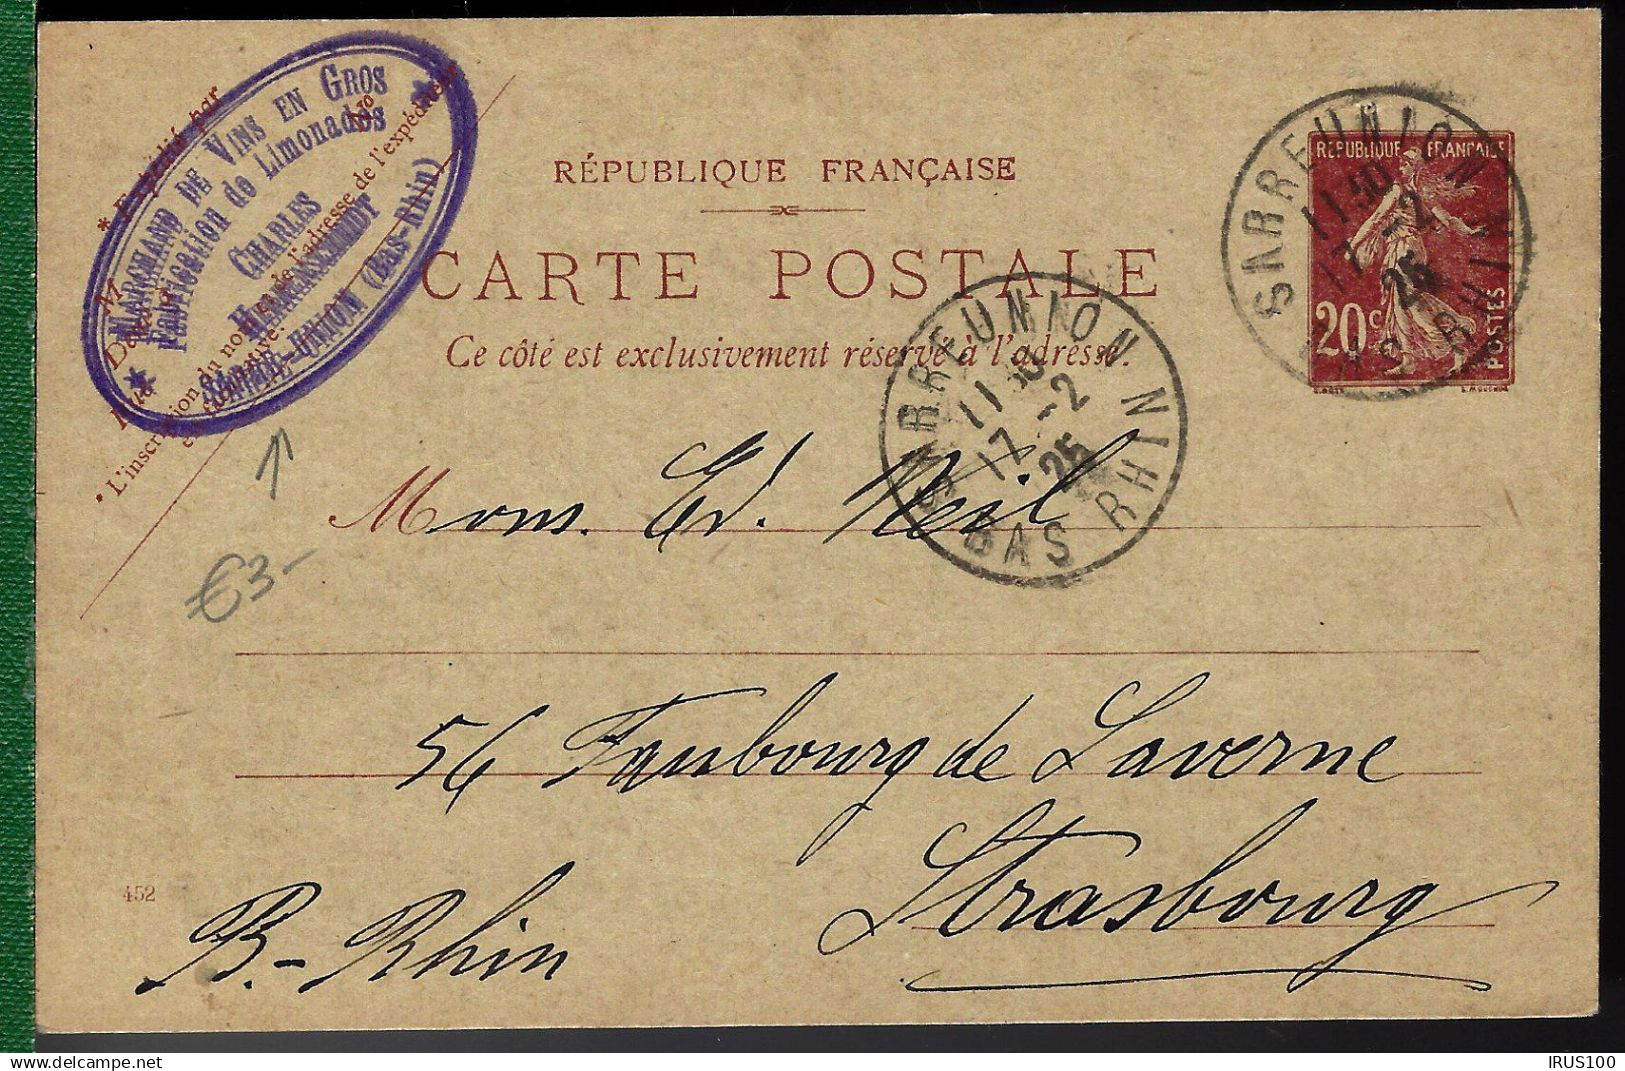 MARCHAND DE VINS EN GROS
Fabrication de Limonades
CHARLES
SARRE-UNION (Bas-Rhin)
* Expédié par
No
* L'inscription du nom et de l'adresse de l'expéditeur
est facultative.
RÉPUBLIQUE FRANÇAISE
CARTE POSTALE
Ce côté est exclusivement réservé à l'adresse.
REPUBLIQUE FRANÇAISE
20c
POSTES
SARREUNION
11 30
17 -2
25
BAS RHIN
SARREUNION
11 30
17 -2
25
BAS RHIN
€3-
Mons. Ed. Neil
56 Faubourg de Saverne
Strasbourg
B.-Rhin
452
IRUS100